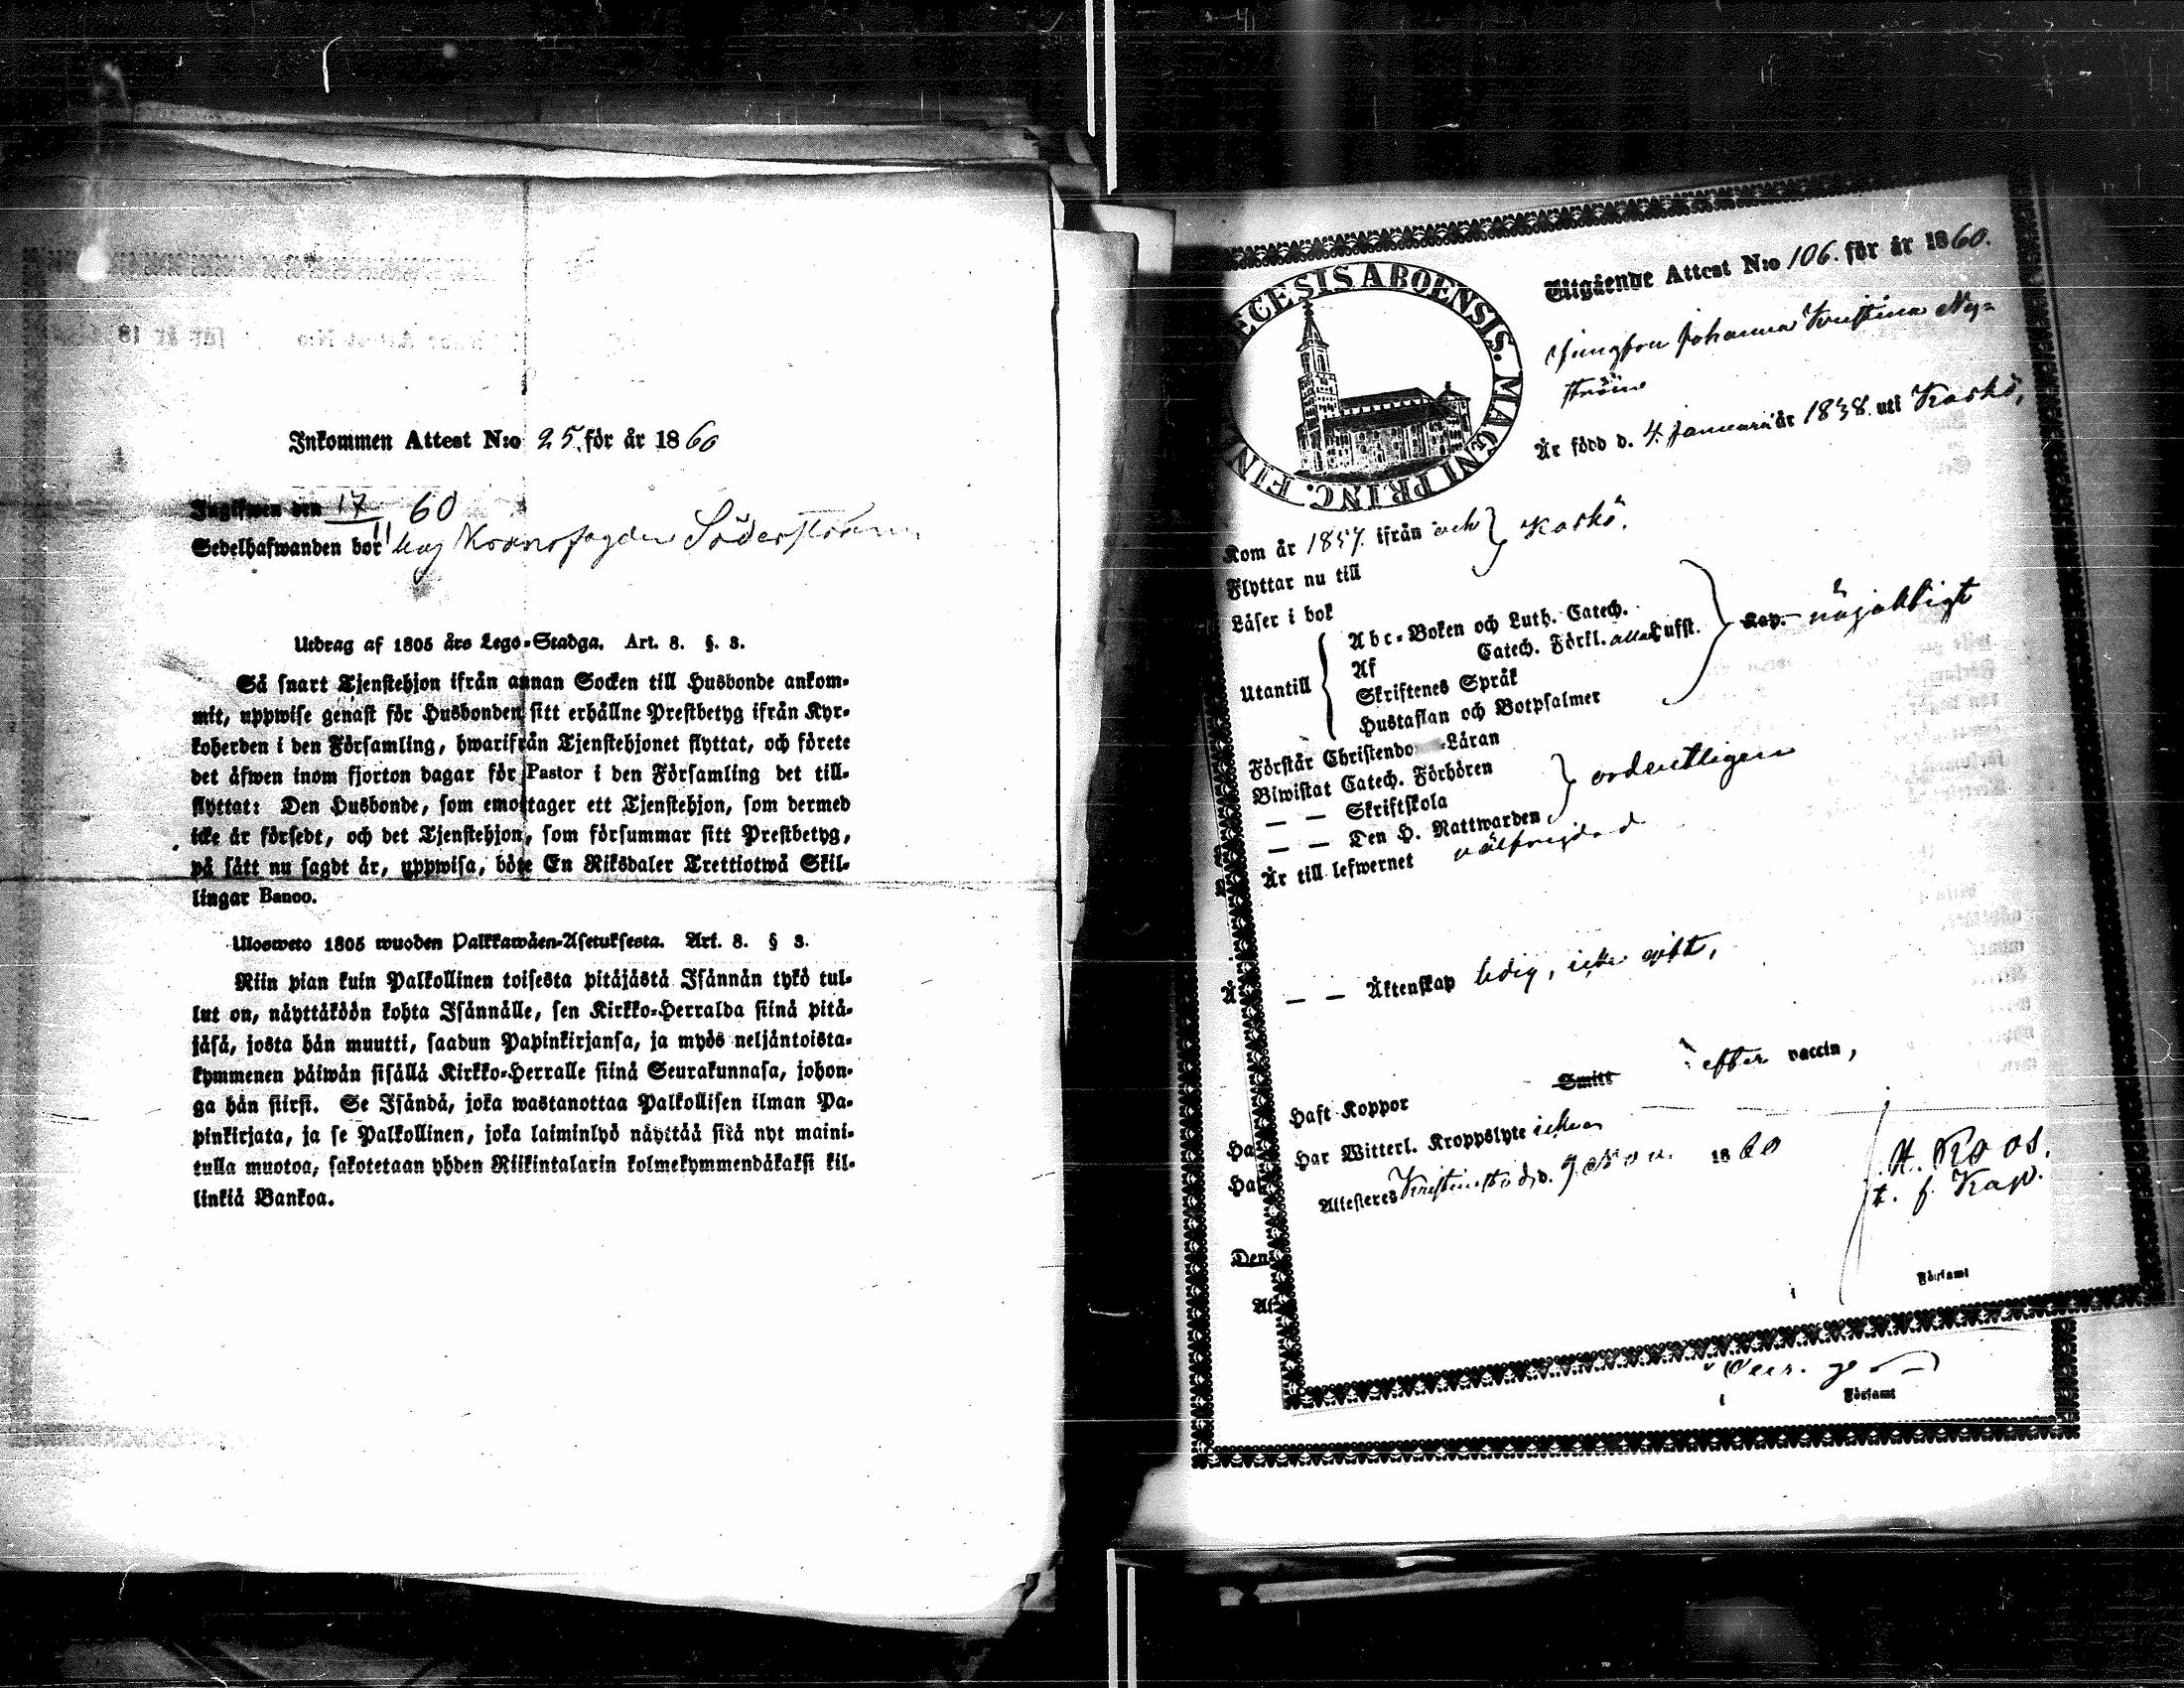 Inkommen Attest N:o 25. för år 1860
Ingifwen den 17/11 60
Sedelhafwanden bor hos Kronofogden Söderström
Utdrag af 1805 års Lego-Stadga. Art. 8. §. 3.
Så snart Tjenstehjon ifrån annan Socken till Husbonde ankom-
mit, uppwise genast för Husbonden sitt erhållne Prestbetyg ifrån Kyr-
koherden i den Församling, hwarifrån Tjenstehjonet flyttat, och förete
det äfwen inom fjorton dagar för Pastor i den Församling det till-
flyttat: Den Husbonde, som emottager ett Tjenstehjon, som dermed
icke är försedt, och det Tjenstehjon, som försummar sitt Prestbetyg,
på sätt nu sagdt är, uppwisa, böte En Riksdaler Trettiotwå Skil-
lingar Banco.
Ulosweto 1805 wuoden Palkkawäen-Asetuksesta. Art. 8. § 3.
Niin pian kuin Palkollinen toisesta pitäjästä Isännän tykö tul-
lut on, näyttäköön kohta Isännälle, sen Kirkko-Herralda siinä pitä-
jäsä, josta hän muutti, saadun Papinkirjansa, ja myös neljäntoista-
kymmenen päiwän sisällä Kirkko-Herralle siinä Seurakunnasa, johon-
ga hän siirsi. Se Isändä, joka wastanottaa Palkollisen ilman Pa-
pinkirjata, ja se Palkollinen, joka laiminlyö näyttää sitä nyt maini-
tulla muotoa, sakotetaan yhden Riikintalarin kolmekymmendäkaksi kil-
linkiä Bankoa.
ECESIS ABOENSIS. MAGNI PRINC. FIN
Utgående Attest N:o 106. för år 1860.
Jungfru Johanna Kristina Ny-
ström
Är född d. 4. Januari år 1838. uti Kaskö,
Kom år 1857. ifrån och } Kaskö.
Flyttar nu till
Läser i bok
Utantill
Abc-Boken och Luth. Catech.
Af Catech. Förkl. alla Lufst.
Skriftenes Språk
Hustaflan och Botpsalmer
Kap. nöjaktigt
Förstår Christendo -Läran
Biwistat Catech. Förhören
— — Skriftskola
— — Den H. Nattwarden
ordentligen
Är till lefwernet välfrejdad
— — Äktenskap ledig, icke gift,
Haft Koppor Smitt efter vaccin,
Har Witterl. Kroppslyte icke
Attesteres Kristinestad d. 9. Nov. 1860
A. Roos.
t. f. Kap.
i Församl
Ä
Ha
Har
Den
At
i Församl